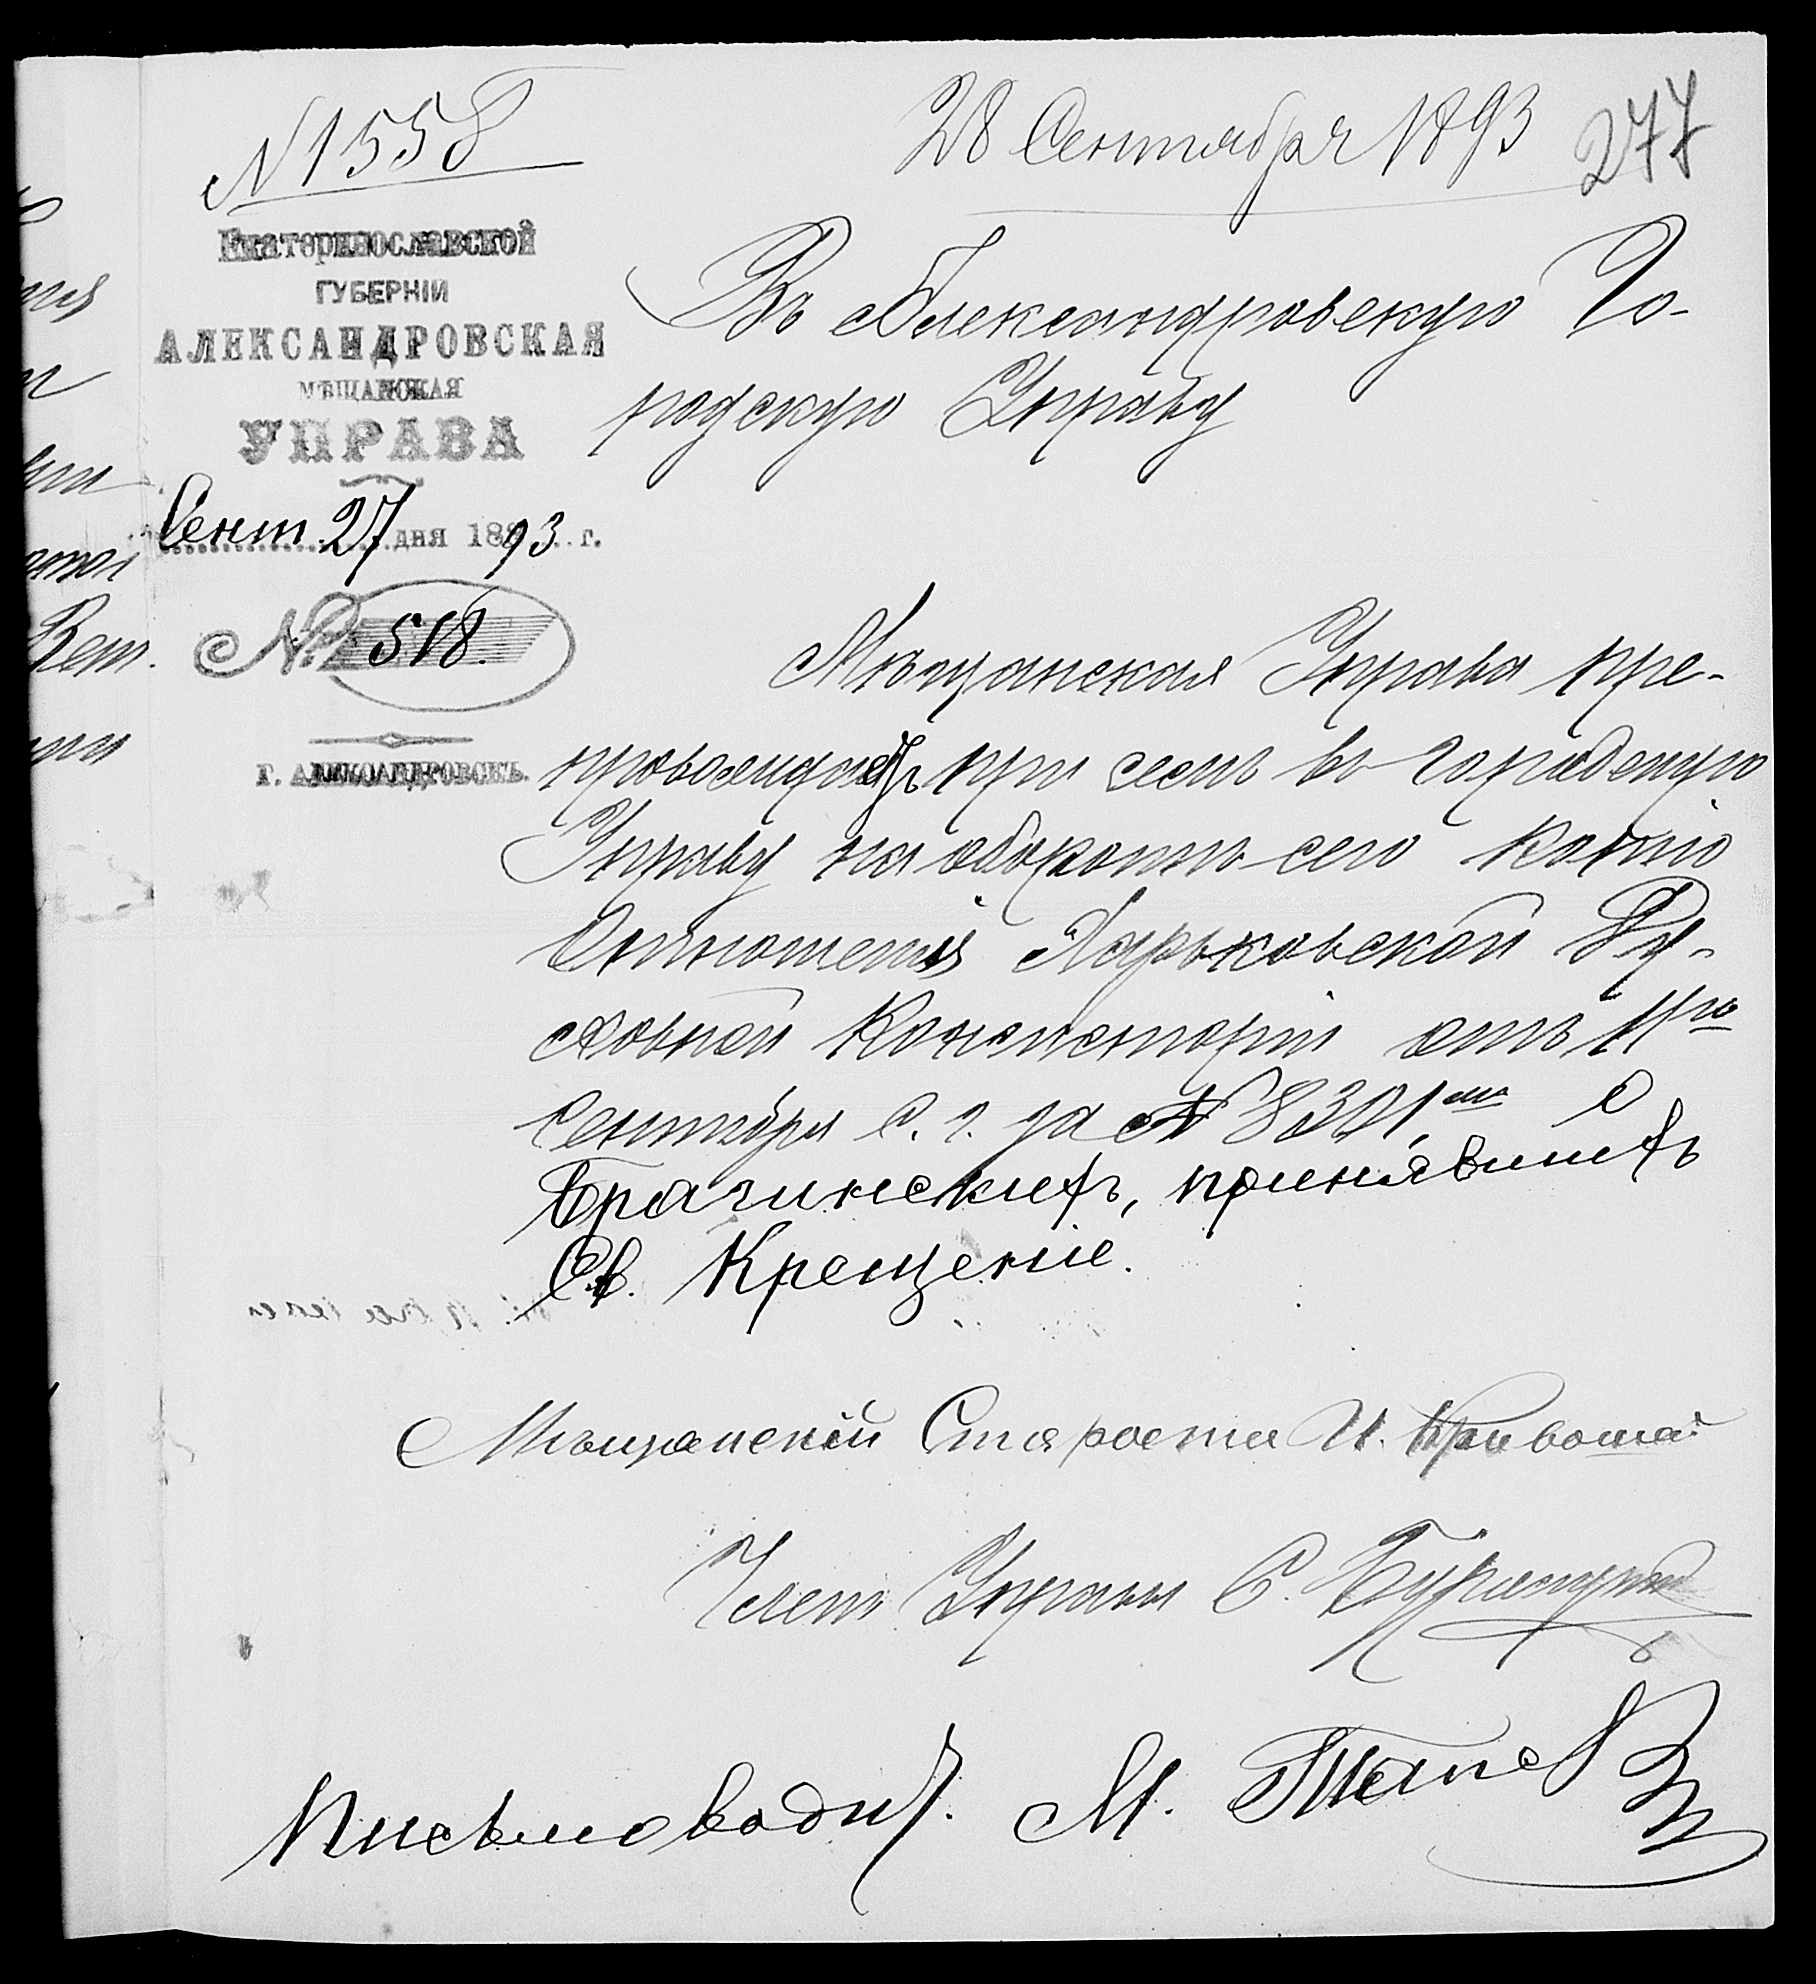 № 1558
28 Сентября 1893
277
Екатеринославской
ГУБЕРНІИ
АЛЕКСАНДРОВСКАЯ
МѢЩАНСКАЯ
УПРАВА
Сент. 27 дня 1893 г.
№ 518.
г. АЛЕКСАНДРОВСКЪ.
Въ Александровскую Го-
родскую Управу
Мѣщанская Управа пре-
провождаетъ при семъ въ Городскую
Управу на оборотѣ сего копію
Отношенія Харьковской Ду-
ховной Консисторіи отъ 11го
Сентября с. г. за № 8321мъ о
Брагинскихъ, принявшихъ
Св. Крещеніе.
Мѣщанскій Староста И.
Членъ Управы С.
Письмовод. М.